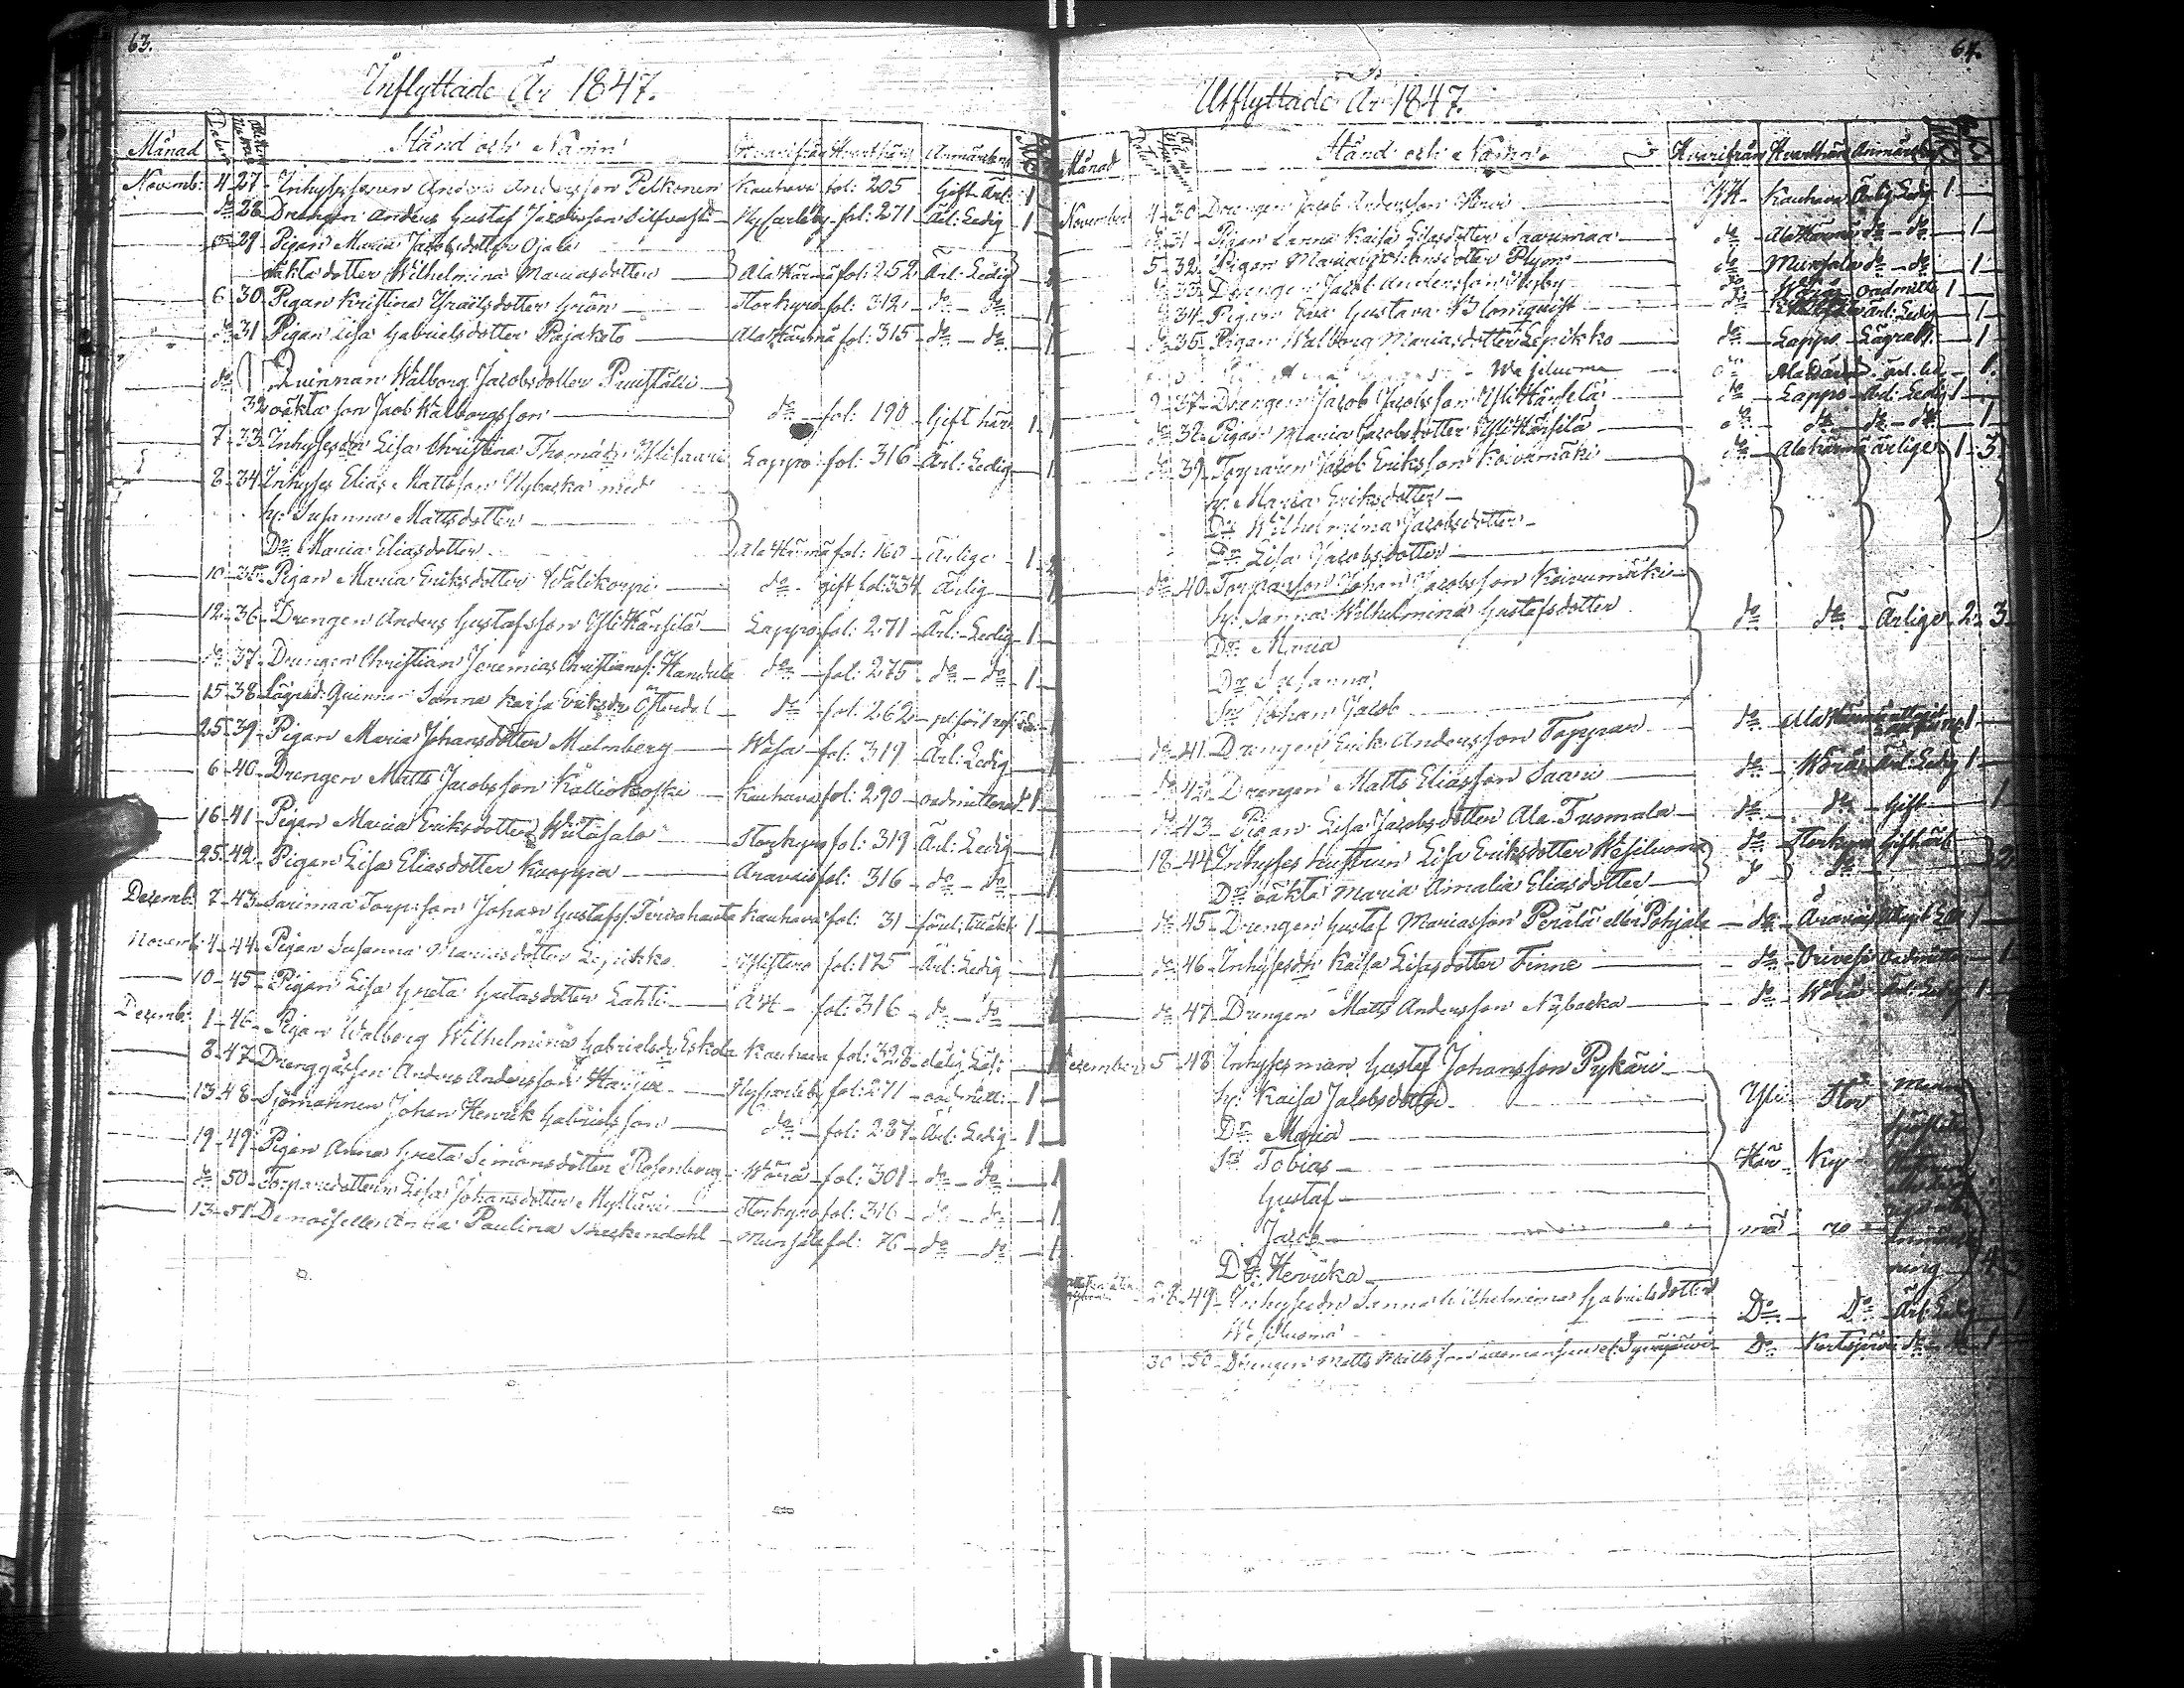 63.
Inflyttade År 1847.
Månad Datum Stånd och Namn Hvarifrån Hvarthän Anmärkn
Novemb: 4 27 Inhysessonen Anders Andersson Pelkonen Kauhava fol: 205 Gift Ärl: 1
do 28 Drengen Anders Gustaf Jacobsson Silfvast NyCarleby fol: 271 Ärl: Ledig 1
do 29 Pigan Maria Jacobsdotter Ojala
oäkta dotter Wilhelmina Mariasdotter Ala Härmä fol: 252 Ärl: Ledig 2
6 30 Pigan Kristina Israelsdotter Grön Storkyro fol: 312 do do 1
do 31 Pigan Lisa Gabrielsdotter Pajakoto Ala Härmä fol: 315 do do 1
do 32 Quinnan Walborg Jacobsdotter
oäkta son Jacob Walborgsson do fol: 190 Gift här 1
7 33 Inhysesdr Lisa Christina Thomasdr Ylisaari Lappo fol: 316 Ärl: Ledig 1
8 34 Inhyses Elias Mattsson Nybacka med
h: Susanna Mattsdotter
Dr Maria Eliasdotter Ala Härmä fol: 160 Ärlige 1 2
10 35 Pigan Maria Eriksdotter Wälikorpi do gift fol: 334 Ärlig 1
12 36 Drengen Anders Gustafsson Yli Hänsilä Lappo fol: 271 Ärl: Ledig 1
do 37 Drengen Christian Jeremias Christianss: Handula do fol: 275 do do 1
15 38 Lägrad: Quinnan Sanna Kaisa Eriksdr Östendal do fol: 262
25 39 Pigan Maria Johansdotter Malmberg Wasa fol: 319 Ärl: Ledig 1
6 40 Drengen Matts Jacobsson Kalliokoski Kauhava fol: 290 oadmitterad 1
16 41 Pigan Maria Eriksdotter Wiitasalo Storkyro fol: 319 Ärl: Ledig 1
25 42 Pigan Lisa Eliasdotter Kuoppa Oravais fol: 316 do do 1
Decemb: 7 43 Sarimaa Torp: son Johan Gustafss: Terwahauta Kauhava fol: 31 1
Novemb: 4 44 Pigan Susanna Mariasdotter Lepikko Ylistaro fol: 175 Ärl: Ledig 1
10 45 Pigan Lisa Greta Gretasdotter Lahti AH fol: 316 do do 1
Decemb: 1 46 Pigan Walborg Wilhelmina Gabrielsdr Eskola Kauhava fol: 328 1
8 47 Drenggåssen Anders Andersson Harju NyCarleby fol: 271 oadmitt: 1
13 48 Sjömannen Johan Henrik Gabrielsson do fol: 287 Ärl: Ledig 1
19 49 Pigan Anna Greta Simonsdotter Rosenberg Wörå fol: 301 do do 1
do 50 Torparedottren Lisa Johansdotter Mylläri Storkyro fol: 316 do do 1
13 51 Demoiselle Anna Paulina Munsala fol: 76 do do 1
64.
Utflyttade År 1847.
Månad Datum Stånd och Namn. Hvarifrån Hvarthän Anmärkn
November 4 30 Drengen Jacob Andersson YH Kauhava Ärlig Ledig 1
do 31 Pigan Sanna Kaisa Lisasdotter Saarimaa do Ala Härmä do do 1
5 32 Pigan Maria Johansdotter Plym do Munsala do do 1
do 33 Drengen Jacob Andersson Nyby do Wörå Oadmitt 1
do 34 Pigan Eva Gustava Blomquist do Ärl: Ledig 1
do 35 Pigan Walborg Mariasdotter Lepikko do Lappo Lägrad 1
Wesiluoma do Ala Härmä 1
9 37 Drengen Jacob Jacobsson Yli Hänsilä do Lappo Ärl: Ledig 1
do 38 Pigan Maria Jacobsdotter Yli Hänsilä do do do do 1
do 39 Torparen Jacob Eriksson Koivumäki do Ala Härmä ärlige 1 3
h: Maria Eriksdotter
Dr Wilhelmina Jacobsdotter
Dr Lisa Jacobsdotter
do 40 Torparson Johan Jacobsson Koivumäki
h: Sanna Wilhelmina Gustafsdotter do do Ärlige 2 3
Dr Maria
Dr Susanna
Sn Johan Jacob
do 41 Drengen Erik Andersson Toppar do Ala Härmä 1
do 42 Drengen Matts Eliasson Saari do Wörå Ärl: Ledig 1
do 43 Pigan Lisa Jacobsdotter Ala Tuomala do do Gift 1
18 44 Inhyses hustrun Lisa Eriksdotter Wesiluoma do Storkyro 2
Dr oäkta Maria Amalia Eliasdotter do
do 45 Drengen Gustaf Mariasson Perälä eller Pohjala do Oravais 1
do 46 Inhysesdr Kaisa Lisasdotter Finne do Orivesi Oadmitt 1
do 47 Drengen Matts Andersson Nybacka do Wörå Ärl: Ledig 1
December 5 48 Inhysesman Gustaf Johansson Pykäri
h: Kaisa Jacobsdotter Yli Stor
Dr Maria
Sn Tobias Här Ky
Gustaf
Jacob mä ro
Dr Henrika 4
28 49 Inhysesdr Sanna Wilhelmina Gabrielsdotter
Wesiluoma Do Do Ärl: Ledig 1
30 50 Drengen Matts Mattsson Do Kortesjärvi do 1